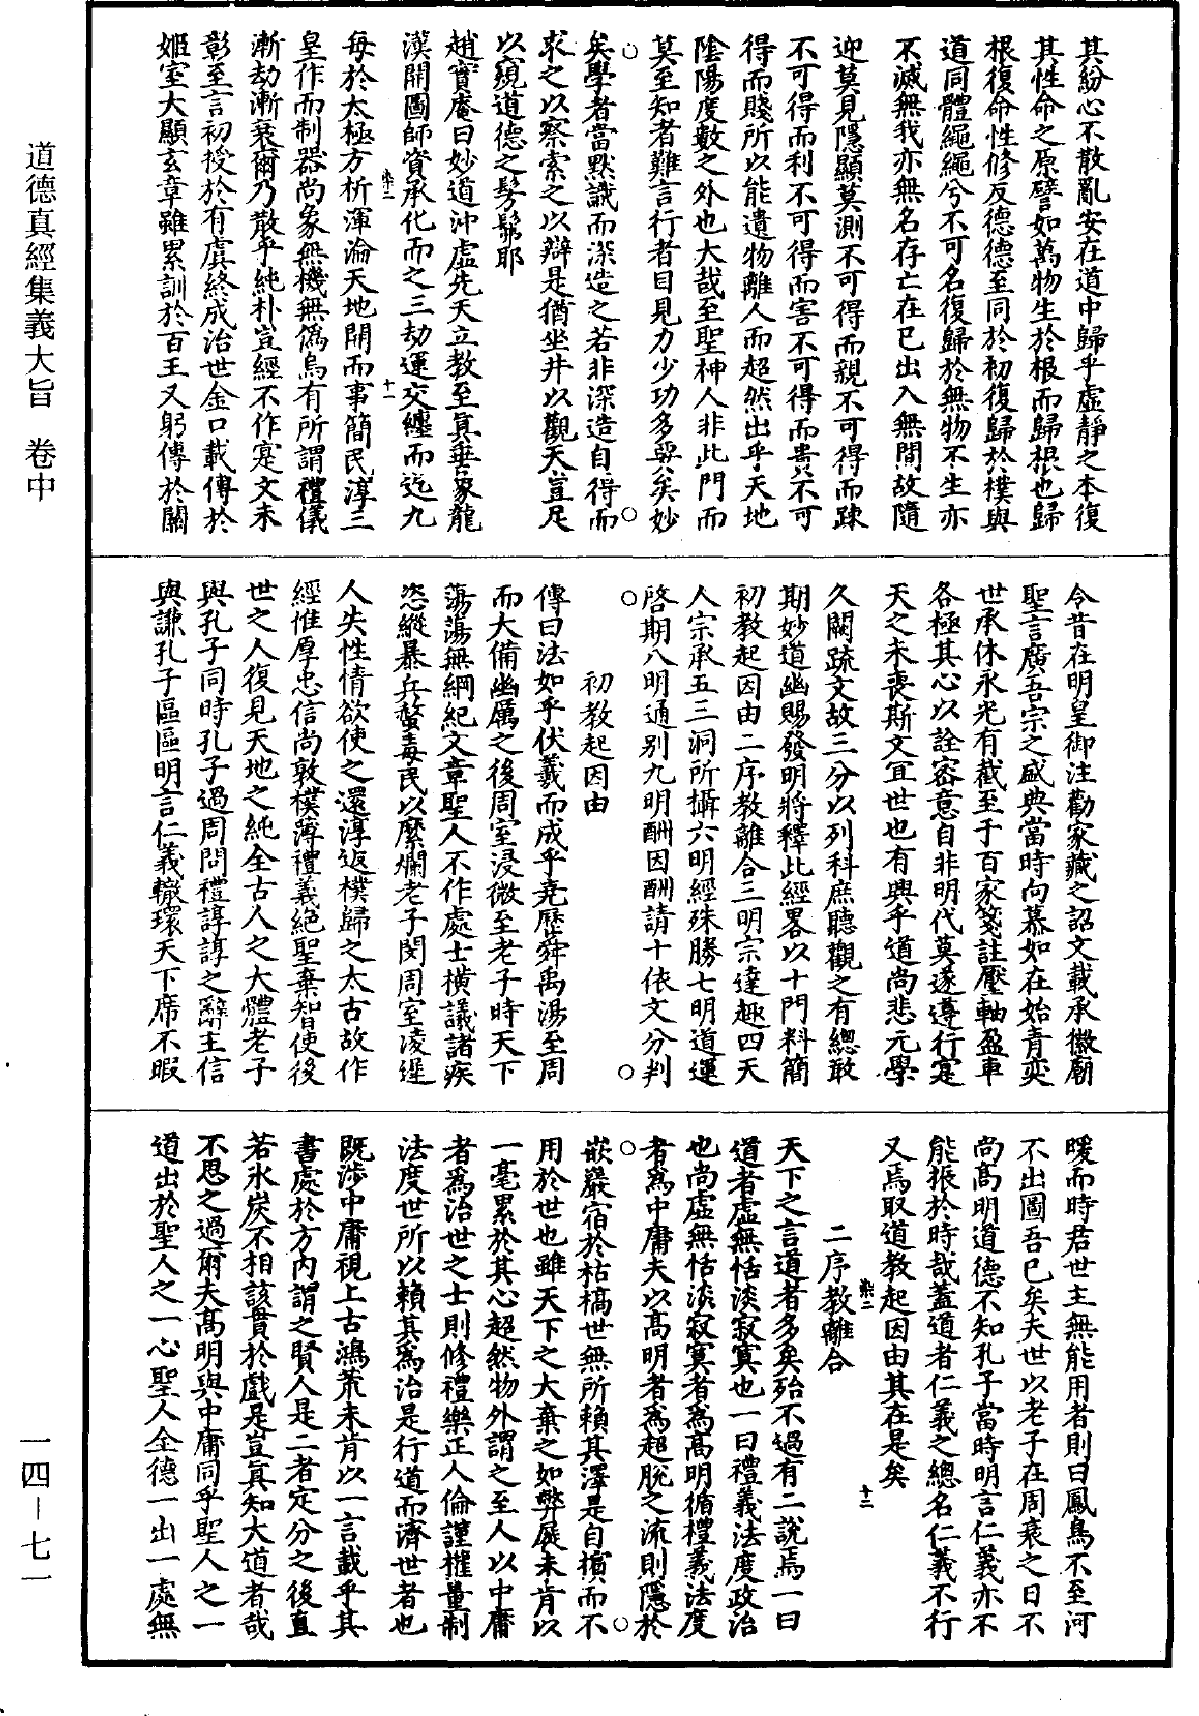 道德真經集義大旨　卷中
其紛心不散亂安在道中歸乎虛靜之本復
其性命之原譬如萬物生於根而歸根也歸
根復命性修反德德至同於初復歸於樸與
道同體繩繩兮不可名復歸於無物不生亦
不滅無我亦無名存亡在已出入無間故隨
迎莫見隱顯莫測不可得而親不可得而踈
不可得而利不可得而害不可得而貴不可
得而賤所以能遺物離人而超然出乎天地
陰陽度數之外也大哉至聖神人非此門而
莫至知者難言行者目見力少功多舉矣妙
矣學者當默識而深造之若非深造自得而
求之以察索之以辯是猶坐井以觀天豈足
以窺道德之髣髴耶
趙實庵曰妙道沖虛先天立教至真垂象龍
漢開圖師資承化而之三劫運交纏而迄九
染二　十一
每於太極方析渾淪天地開而事簡民淳三
皇作而制器尚象無機無僞烏有所謂禮儀
漸劫漸衰爾乃散乎純朴豈經不作寔文未
彰至言初授於有虞終成治世金口載傳於
姬室大顯玄章雖累訓於百王又躬傳於關
今昔在明皇御注勸家藏之詔文載承徽廟
聖言廣吾宗之盛典當時向慕如在始青奕
世承休永光有截至于百家箋註壓軸盈車
各極其心以詮密意自非明代莫遂遵行寔
天之未喪斯文宜世也有興乎道尚悲元學
久闕䟽文故三分以列科庶聽觀之有總敢
期妙道幽賜發明將釋此經畧以十門料簡
初教起因由二序教離合三明宗達趣四天
人宗承五三洞所攝六明經殊勝七明道運
啓期八明通别九明酬因酬請十依文分判
初教起因由
傳曰法如乎伏羲而成乎堯歷舜禹湯至周
而大備幽厲之後周室浸微至老子時天下
蕩蕩無綱紀文章聖人不作處士橫議諸疾
恣縱暴兵螫毒民以糜爛老子閔周室淩遲
人失性情欲使之還淳返樸歸之太古故作
經惟厚忠信尚敦樸薄禮義絕聖棄智使後
世之人復見天地之純全古人之大體老子
與孔子同時孔子過周問禮諄諄之辭主信
與謙孔子區區明言仁義轍環天下席不暇
暖而時君世主無能用者則曰鳳鳥不至河
不出圖吾已矣夫世以老子在周衰之日不
尚高明道德不知孔子當時明言仁義亦不
能振於時哉蓋道者仁義之總名仁義不行
又焉取道教起因由其在是矣
染二　十二
二序教離合
天下之言道者多矣殆不過有二說焉一曰
道者虛無恬淡寂寞也一曰禮義法度政治
也尚虛無恬淡寂寞者為高明循禮義法度
者為中庸夫以高明者為超脫之流則隱於
嵌巖宿於枯槁世無所賴其澤是自擯而不
用於世也雖天下之大棄之如弊屣未肯以
一毫累於其心超然物外謂之至人以中庸
者為治世之士則修禮樂正人倫謹權量制
法度世所以賴其為治是行道而濟世者也
既涉中庸視上古鴻荒未肯以一言載乎其
書處於方內謂之賢人是二者定分之後直
若氷炭不相該貫於戲是豈真知大道者哉
不思之過爾夫高明與中庸同乎聖人之一
道出於聖人之一心聖人全德一出一處無
一四—七一